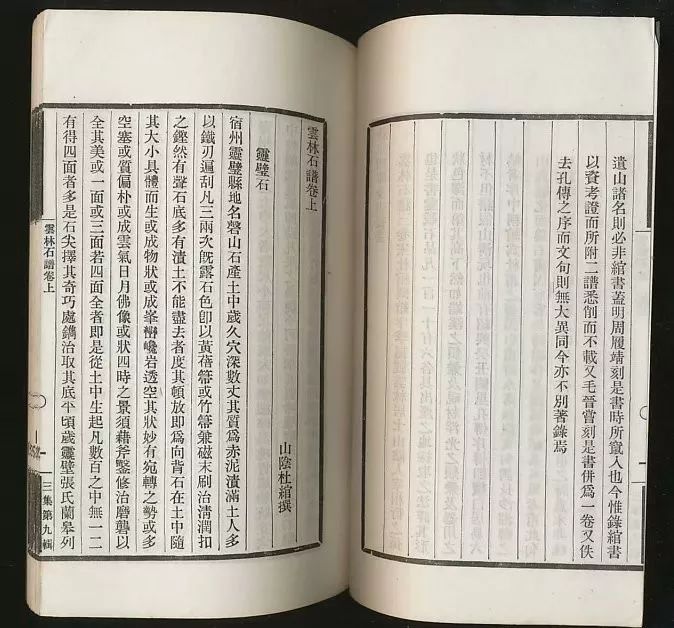 遺山諸名則必非綰書蓋明周履靖刻是書時所竄入也今惟錄綰書
以資考證而所附二譜悉削而不載又毛晉嘗刻是書併爲一卷又佚
去孔傳之序而文句則無大異同今亦不別著錄焉
雲林石譜卷上
山陰杜綰撰
靈璧石
宿州靈璧縣地名磬山石產土中歲久穴深數丈其質爲赤泥漬滿土人多
以鐵刃遍刮凡三兩次旣露石色卽以黃蓓箒或竹箒兼磁末刷治淸潤扣
之鏗然有聲石底多有漬土不能盡去者度其頓放即爲向背石在土中隨
其大小具體而生或成物狀或成峯巒巉岩透空其狀妙有宛轉之勢或多
空塞或質偏朴或成雲氣日月佛像或狀四時之景須藉斧鑿修治磨礱以
全其美或一面或三面若四面全者即是從土中生起凡數百之中無一二
有得四面者多是石尖擇其奇巧處鐫治取其底平頃歲靈璧張氏蘭皋列
雲林石譜卷上
一
三集第九輯